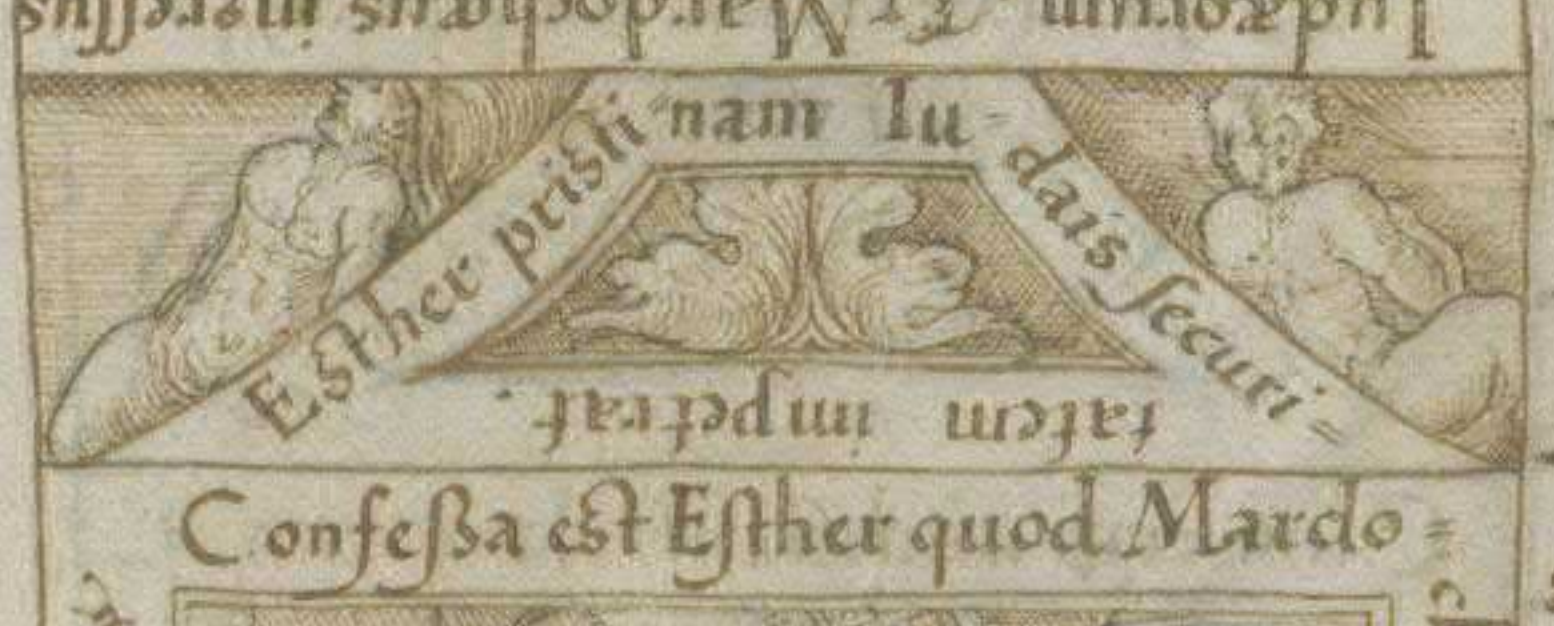 Iudæorum. Et Mardochæus ingreſſus
Esther pristi=
nam Iu=
dais ſecuri=
tatem impetrat.
Confeßa est Eſther quod Mardo=